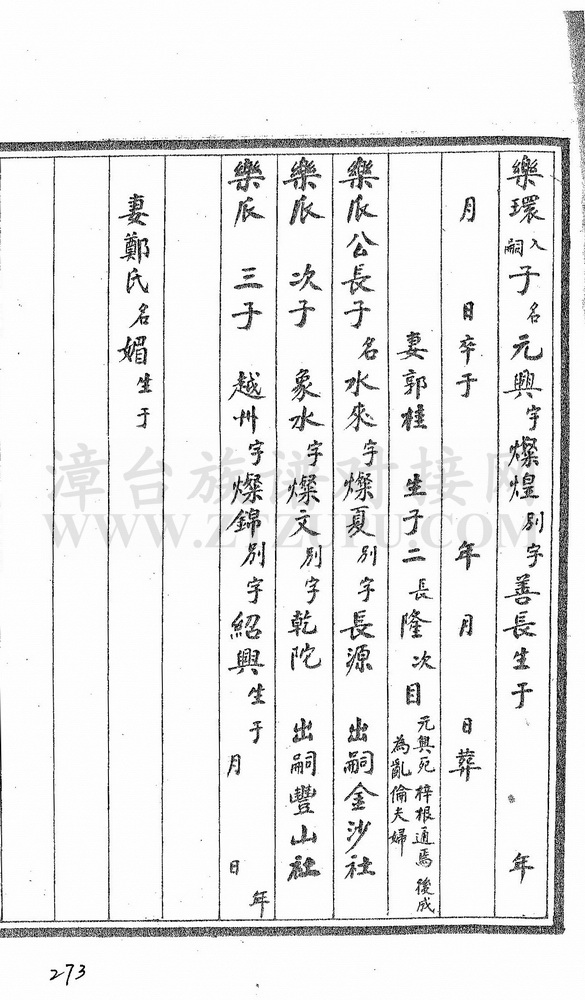 樂環入嗣子名元興字燦煌別字善長生于 年
月 日卒于 年 月 日葬
妻郭桂 生子二長隆次目 元興死梓根通焉後成為亂倫夫婦
樂派公長子名水來字燦夏別字長源 出嗣金沙社
樂派 次子 象水字燦文別字乾陀 出嗣豐山社
樂派 三子 越州字燦錦別字紹興生于 年 月 日
妻鄭氏名媚生于
漳台族谱对接网
WWW.ZTZUPU.COM
273